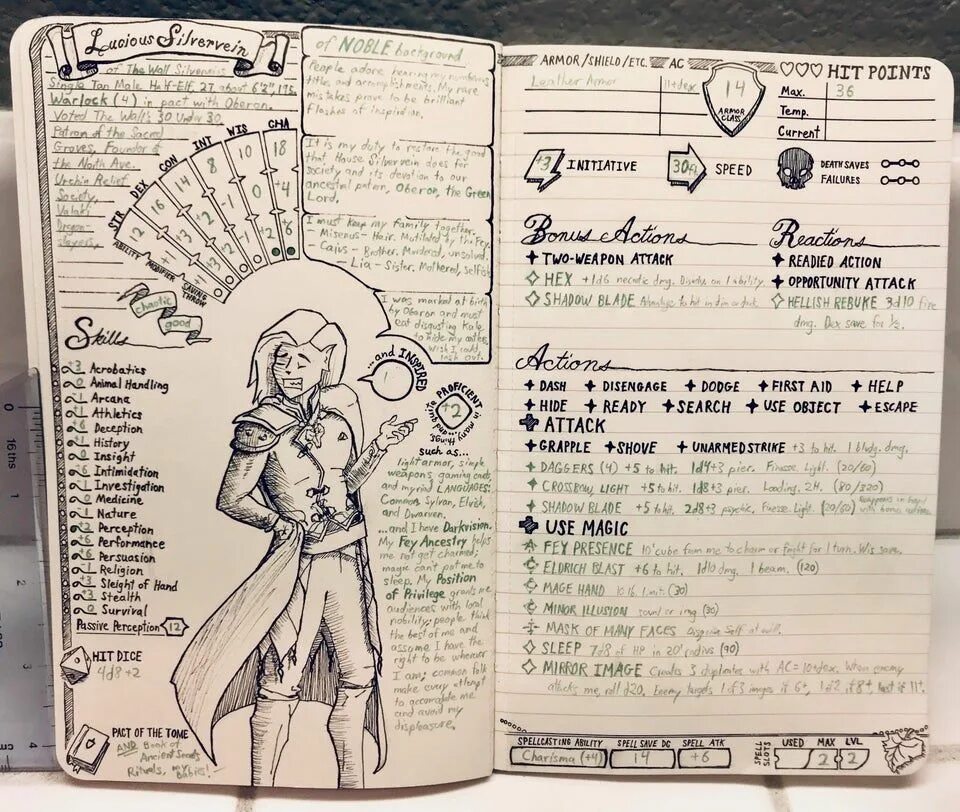 Lucious Silvervein
of The Wall Silverveins
Single Tan Male Half-Elf, 27, about 6'2", 175.
Warlock (4) in pact with Oberon.
Voted The Wall's 30 Under 30.
Patron of the Sacred
Groves, Founder of
the North Ave.
Urchin Relief
Society,
Valaki
Dragon-
slayers.
STR DEX CON INT WIS CHA
12 16 14 8 10 18
+1 +3 +2 -1 0 +4
+1 +3 +2 -1 +2 +6
ABILITY MODIFIER SAVING THROW
chaotic
good
Skills
+3 Acrobatics
0 Animal Handling
-1 Arcana
+1 Athletics
+6 Deception
-1 History
0 Insight
+6 Intimidation
-1 Investigation
0 Medicine
-1 Nature
+2 Perception
+6 Performance
+6 Persuasion
-1 Religion
+3 Sleight of Hand
+3 Stealth
0 Survival
Passive Perception 12
HIT DICE
4d8+2
PACT OF THE TOME
AND Book of
Ancient Secrets
Rituals, my
babies!
of NOBLE background
People adore hearing my numerous
titles and accomplishments. My rare
mistakes prove to be brilliant
flashes of inspiration.
It is my duty to restore the good
that House Silvervein does for
society and its devotion to our
ancestral patron, Oberon, the Green
Lord.
I must keep my family together.
- Misenus - Heir. Mutilated by the Fey.
- Caius - Brother. Murdered, unsolved.
- Lia - Sister. Mothered, selfish
I was marked at birth
by Oberon and must
eat disgusting kale
to hide my antlers.
Wish I could
lash out.
...and INSPIRED
PROFICIENT
+2
in many, many things
such as...
light armor, simple
weapons, gaming cards
and myriad LANGUAGES:
Common, Sylvan, Elvish,
and Dwarven.
...and I have Darkvision.
My Fey Ancestry helps
me not get charmed;
magic can't put me to
sleep. My Position
of Privilege grants me
audiences with local
nobility; people think
the best of me and
assume I have the
right to be wherever
I am; common folk
make every attempt
to accomodate me
and avoid my
displeasure.
ARMOR/SHIELD/ETC. AC
Leather Armor 11+dex
14
ARMOR
CLASS
HIT POINTS
Max. 36
Temp.
Current
+3 INITIATIVE
30ft SPEED
DEATH SAVES
FAILURES
Bonus Actions
TWO-WEAPON ATTACK
HEX +1d6 necrotic dmg. Disadv. on 1 ability.
SHADOW BLADE Advantage to hit in dim or dark
Reactions
READIED ACTION
OPPORTUNITY ATTACK
HELLISH REBUKE 3d10 fire
dmg. Dex save for ½.
Actions
DASH DISENGAGE DODGE FIRST AID HELP
HIDE READY SEARCH USE OBJECT ESCAPE
ATTACK
GRAPPLE SHOVE UNARMED STRIKE +3 to hit. 1 bludg. dmg.
DAGGERS (4) +5 to hit. 1d4+3 pier. Finesse. Light. (20/60)
CROSSBOW, LIGHT +5 to hit. 1d8+3 pier. Loading. 2H. (80/320)
SHADOW BLADE +5 to hit. 2d8+3 psychic. Finesse. Light. (20/60) Reappears in hand with bonus action.
USE MAGIC
FEY PRESENCE 10' cube from me to charm or fright for 1 turn. Wis save.
ELDRICH BLAST +6 to hit. 1d10 dmg. 1 beam. (120)
MAGE HAND 10 lb. limit. (30)
MINOR ILLUSION sound or img (30)
MASK OF MANY FACES Disguise Self at will.
SLEEP 7d8 of HP in 20' radius (90)
MIRROR IMAGE Creates 3 duplicates with AC=10+dex. When enemy
attacks me, roll d20. Enemy targets 1 of 3 images if 6+, 1 of 2 if 8+, last if 11+.
SPELLCASTING ABILITY SPELL SAVE DC SPELL ATK
Charisma (+4) 14 +6
SPELL SLOTS USED MAX LVL
2 2
0
16 ths
1
2
3
4
cm